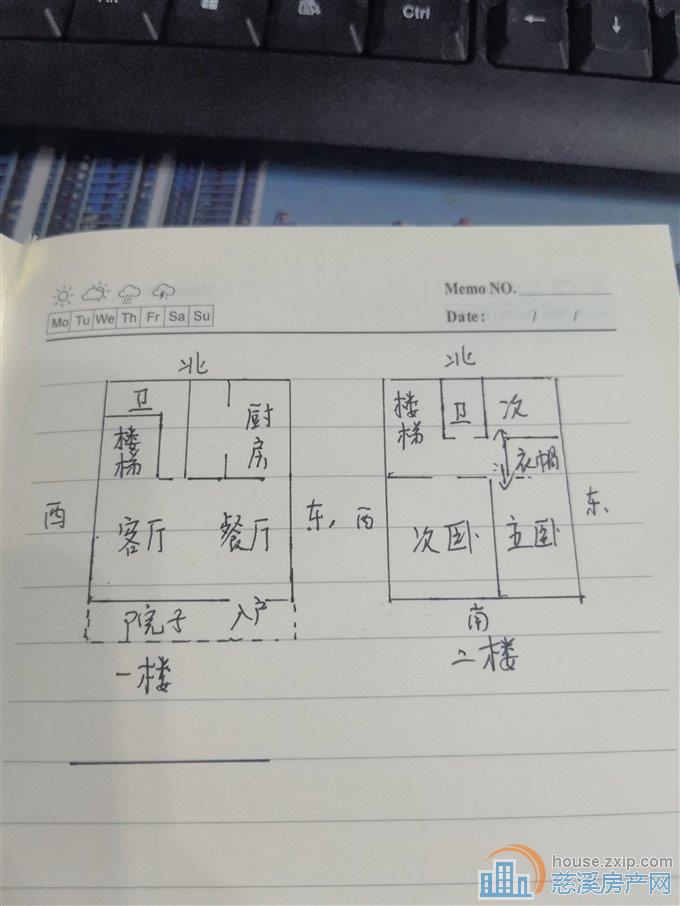 Ctrl
←
↓
Memo NO.
Mo Tu We Th Fr Sa Su
Date: / /
北
北
卫
厨房
楼梯
卫
次
楼梯
衣帽
西
客厅
餐厅
东
西
次卧
主卧
东
院子
入户
南
一楼
二楼
house.zxip.com
慈溪房产网